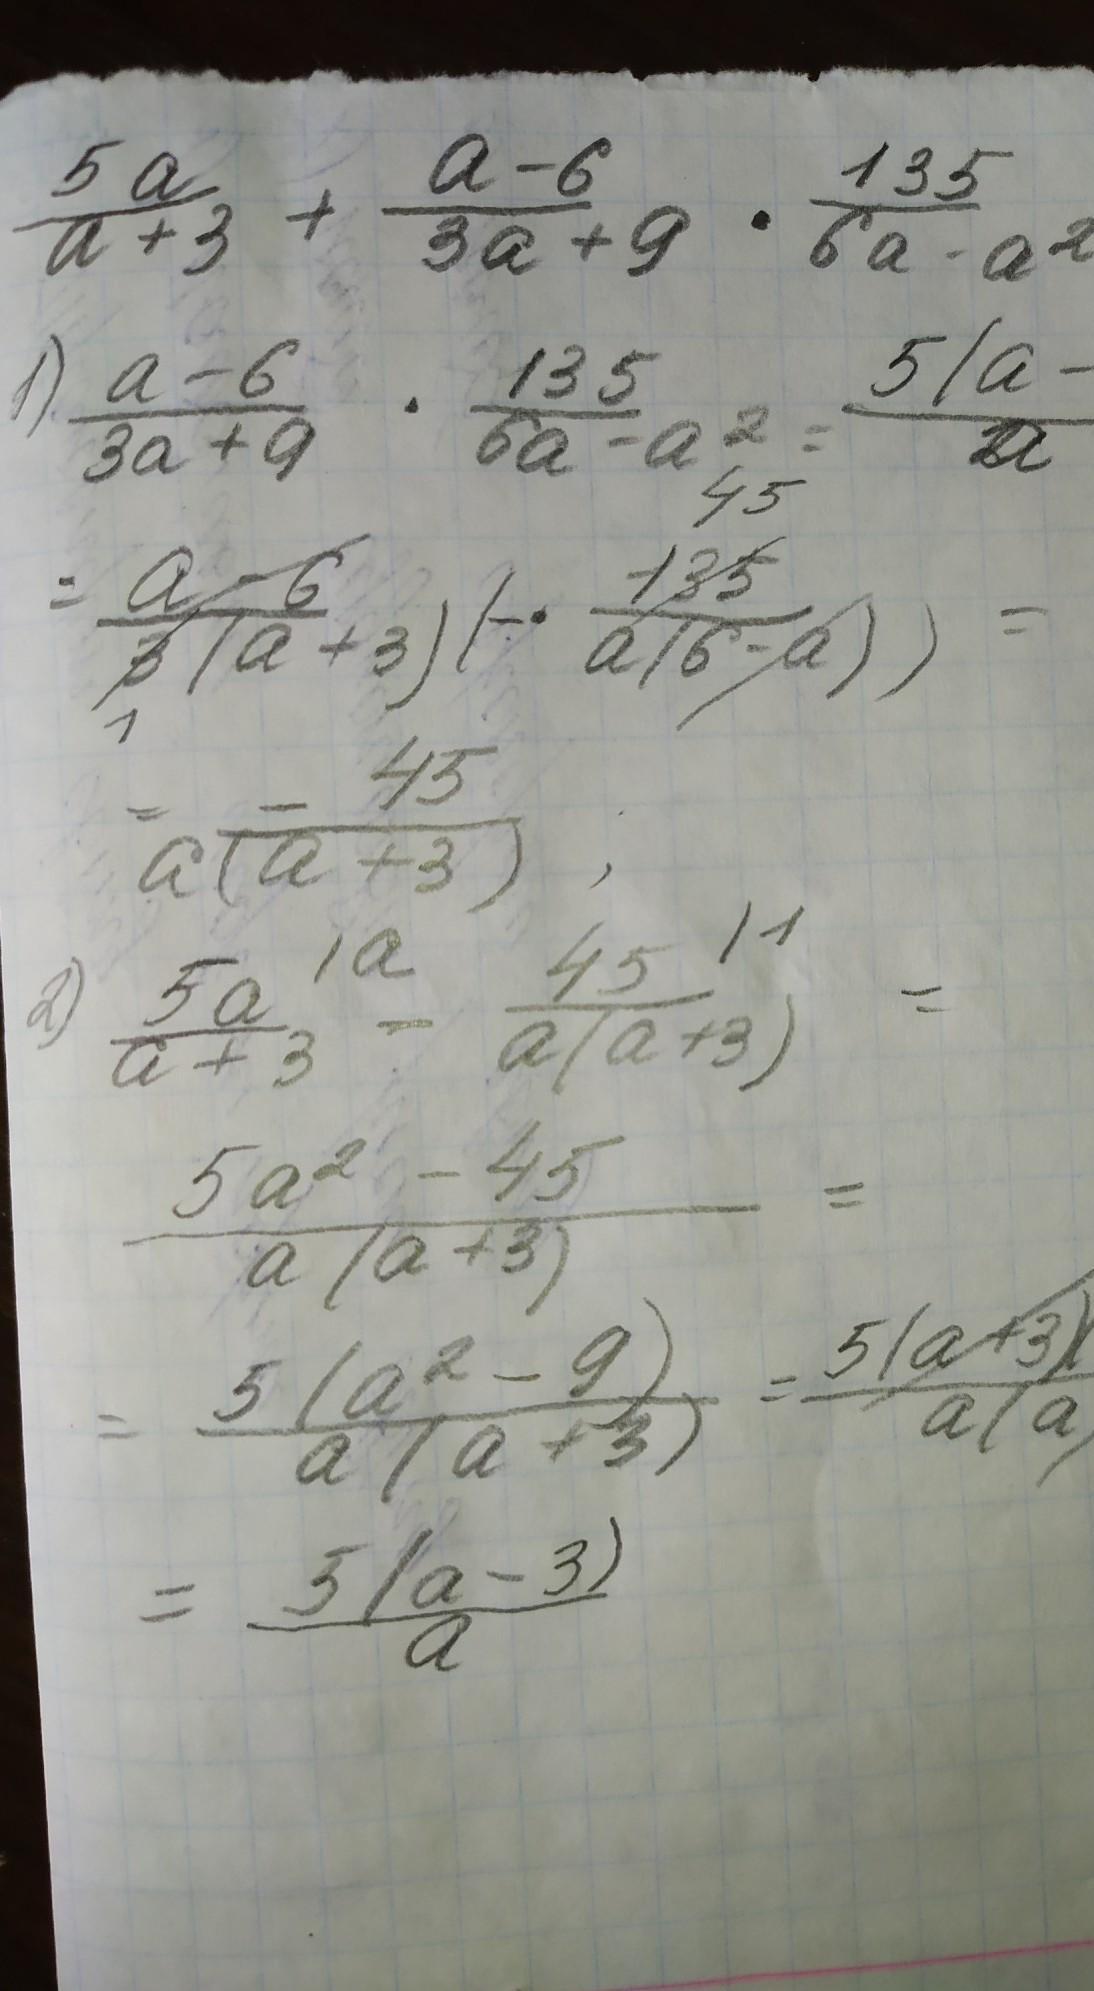 5a/(a+3) + (a-6)/(3a+9) · 135/(6a-a²)
1) (a-6)/(3a+9) · 135/(6a-a²) = 5(a-/a
= (a-6)/(3(a+3)) (-· 135/(a(6-a))) =
45
1
= -45/(a(a+3)) ;
2) 5a/(a+3) |a - 45/(a(a+3)) |1 =
(5a²-45)/(a(a+3)) =
= 5(a²-9)/(a(a+3)) = 5(a+3)(/a(a
= 5(a-3)/a